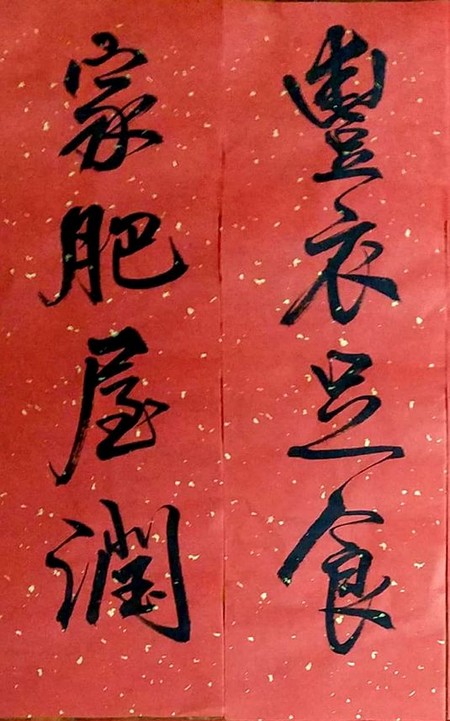 豐衣足食
家肥屋潤